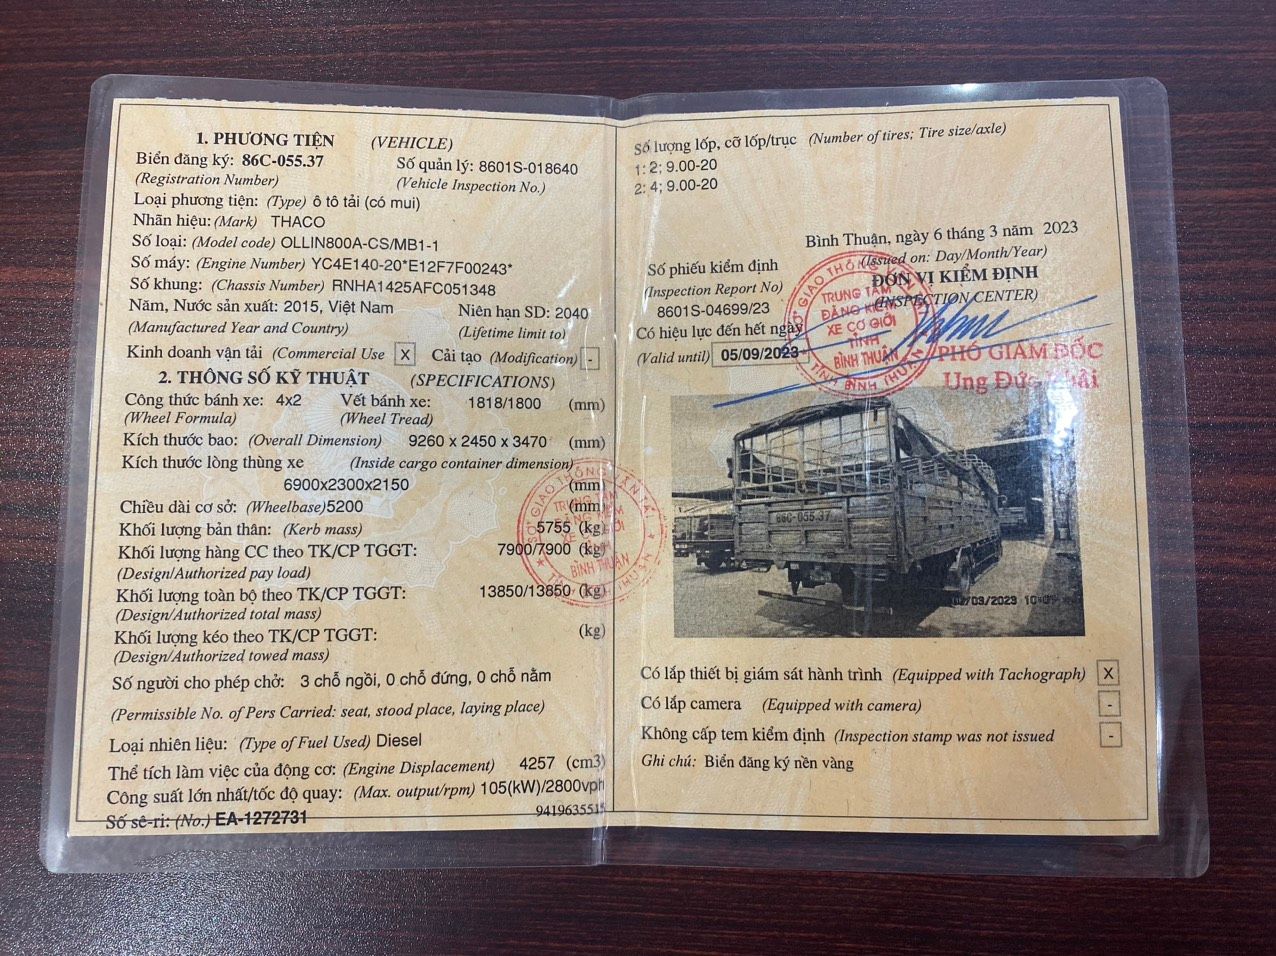 1. PHƯƠNG TIỆN (VEHICLE)
Biển đăng ký: 86C-055.37 Số quản lý: 8601S-018640
(Registration Number) (Vehicle Inspection No.)
Loại phương tiện: (Type) ô tô tải (có mui)
Nhãn hiệu: (Mark) THACO
Số loại: (Model code) OLLIN800A-CS/MB1-1
Số máy: (Engine Number) YC4E140-20*E12F7F00243*
Số khung: (Chassis Number) RNHA1425AFC051348
Năm, Nước sản xuất: 2015, Việt Nam Niên hạn SD: 2040
(Manufactured Year and Country) (Lifetime limit to)
Kinh doanh vận tải (Commercial Use X Cải tạo (Modification) -
2. THÔNG SỐ KỸ THUẬT (SPECIFICATIONS)
Công thức bánh xe: 4x2 Vết bánh xe: 1818/1800 (mm)
(Wheel Formula) (Wheel Tread)
Kích thước bao: (Overall Dimension) 9260 x 2450 x 3470 (mm)
Kích thước lòng thùng xe (Inside cargo container dimension)
6900x2300x2150 (mm)
Chiều dài cơ sở: (Wheelbase)5200 (mm)
Khối lượng bản thân: (Kerb mass) 5755 (kg)
Khối lượng hàng CC theo TK/CP TGGT: 7900/7900 (kg)
(Design/Authorized pay load)
Khối lượng toàn bộ theo TK/CP TGGT: 13850/13850 (kg)
(Design/Authorized total mass)
Khối lượng kéo theo TK/CP TGGT: (kg)
(Design/Authorized towed mass)
Số người cho phép chở: 3 chỗ ngồi, 0 chỗ đứng, 0 chỗ nằm
(Permissible No. of Pers Carried: seat, stood place, laying place)
Loại nhiên liệu: (Type of Fuel Used) Diesel
Thể tích làm việc của động cơ: (Engine Displacement) 4257 (cm3)
Công suất lớn nhất/tốc độ quay: (Max. output/rpm) 105(kW)/2800vph
Số sê-ri: (No.) EA-1272731 9419635515
Số lượng lốp, cỡ lốp/trục (Number of tires; Tire size/axle)
1: 2; 9.00-20
2: 4; 9.00-20
Bình Thuận, ngày 6 tháng 3 năm 2023
(Issued on: Day/Month/Year)
Số phiếu kiểm định ĐƠN VỊ KIỂM ĐỊNH
(Inspection Report No) (INSPECTION CENTER)
8601S-04699/23
Có hiệu lực đến hết ngày
(Valid until) 05/09/2023
TRUNG TÂM
ĐĂNG KIỂM
XE CƠ GIỚI
TỈNH
BÌNH THUẬN
PHÓ GIÁM ĐỐC
Ung Đức
86C-055.37
/03/2023
Có lắp thiết bị giám sát hành trình (Equipped with Tachograph) X
Có lắp camera (Equipped with camera) -
Không cấp tem kiểm định (Inspection stamp was not issued -
Ghi chú: Biển đăng ký nền vàng